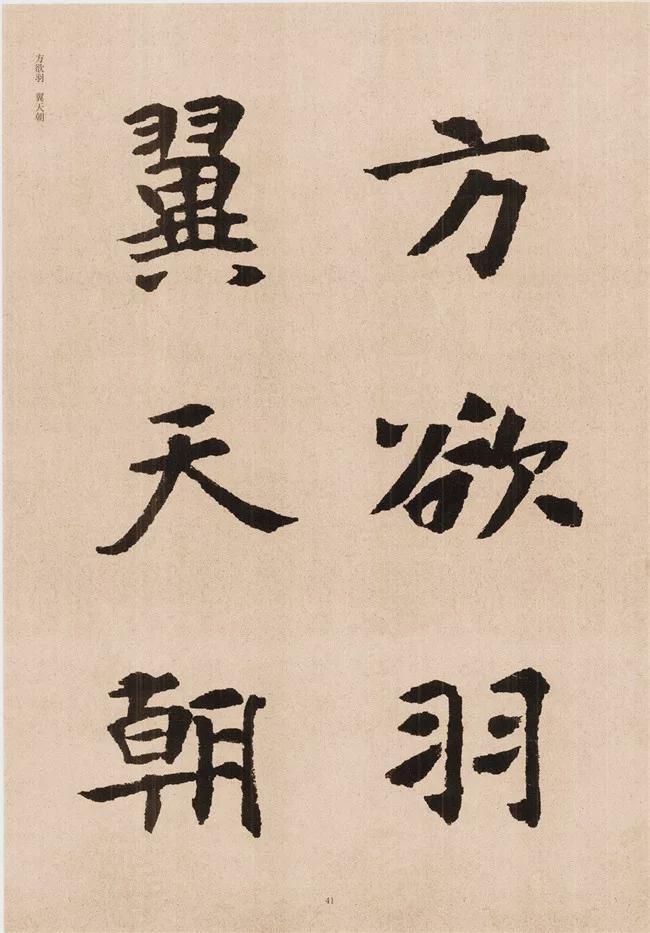 方欲羽
翼天朝
方欲羽　翼天朝
41